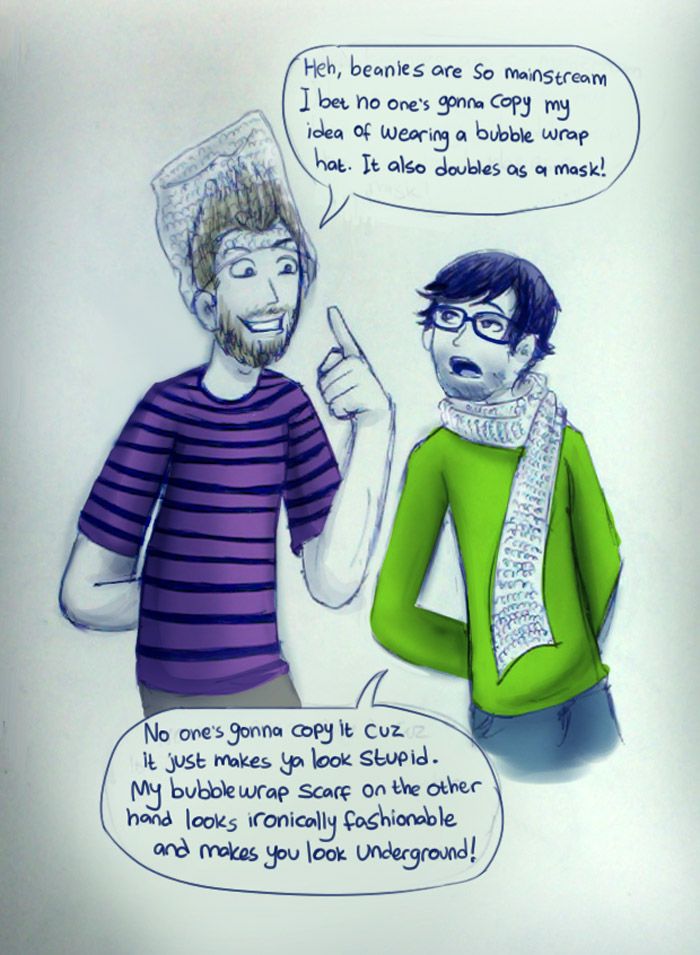 Heh, beanies are so mainstream
I bet no one's gonna copy my
idea of wearing a bubble wrap
hat. It also doubles as a mask!
No one's gonna copy it cuz
it just makes ya look stupid.
My bubblewrap scarf on the other
hand looks ironically fashionable
and makes you look underground!